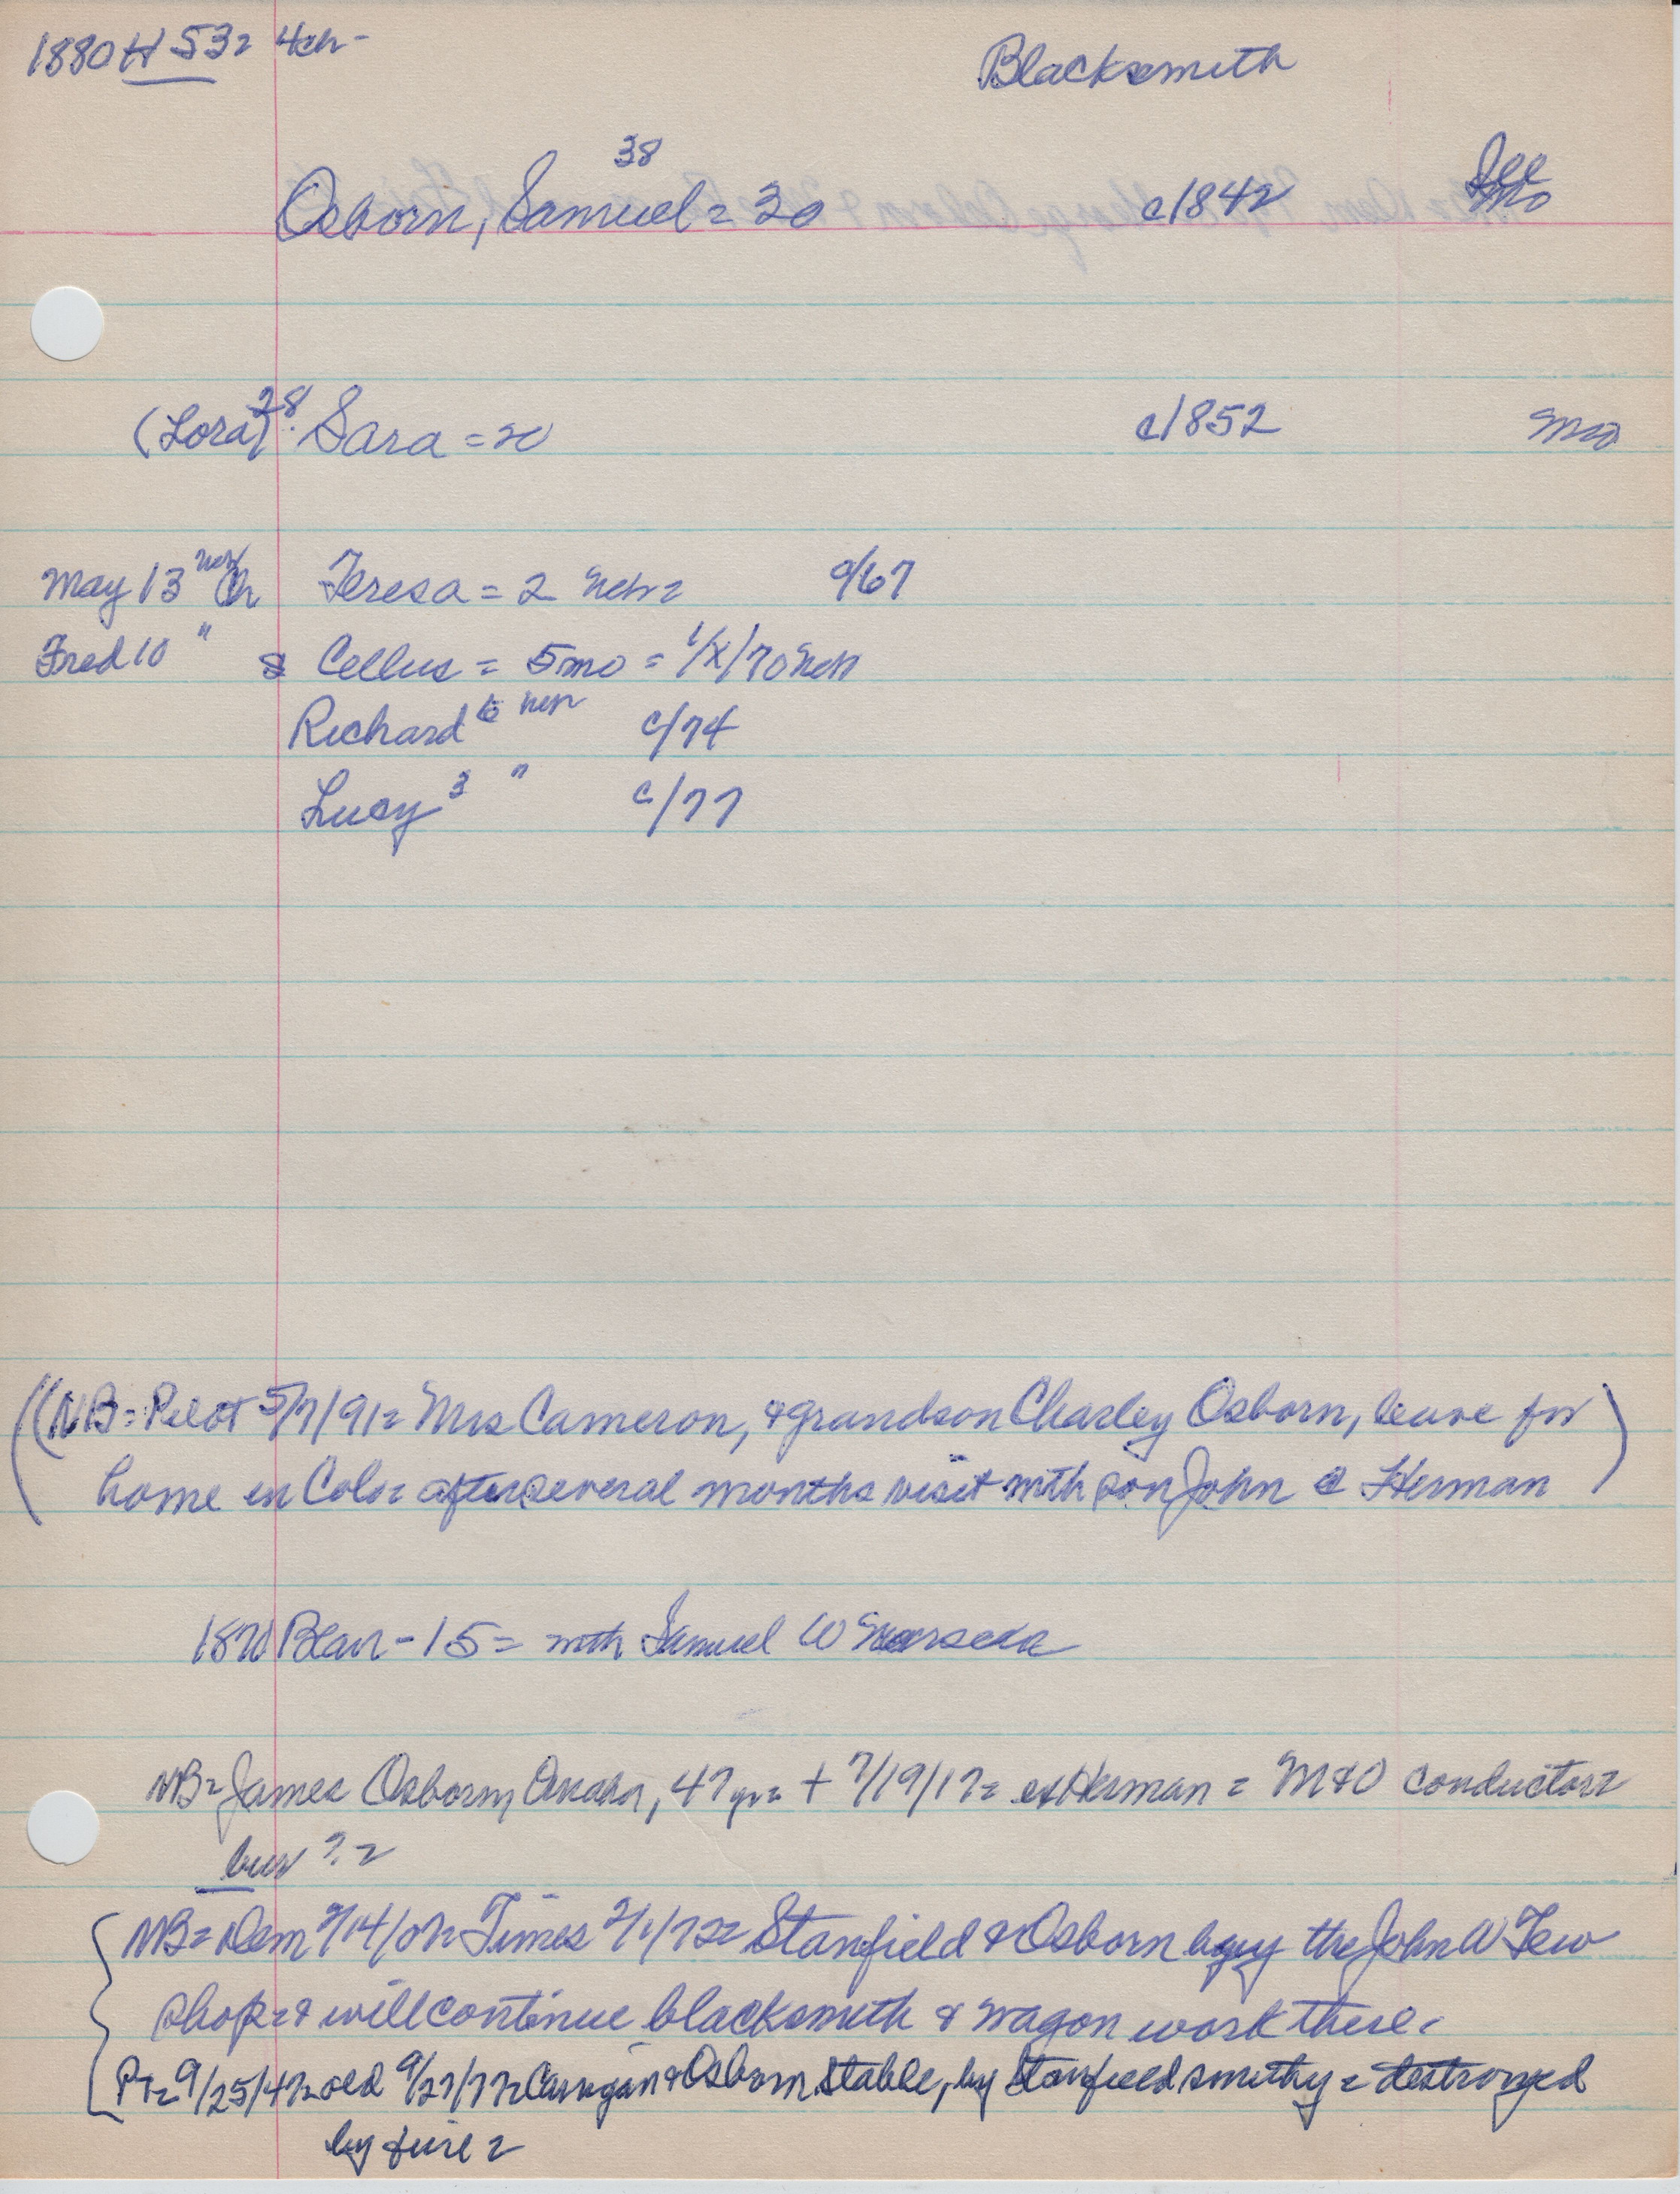 1880 H 53= 4ch-
Blacksmith
38
Osborn, Samuel = 30 c1842 Ill
Mo
(Lora) 28 Sara = 20 c1852 Mo
May 13 neb Ch Teresa = 2 Neb= c/67
Fred 10 " & Cellus = 5mo = 1/X/70 Neb
Richard 6 neb c/74
Lucy 3 " c/77
((NB = Pilot 5/7/91= Mrs Cameron, & grandson Charley Osborn, leave for
home in Colo= after several months visit with son John @ Herman)
1870 Blair - 15 = with Samuel W
NB= James Osborn, Omaha, 47 yr= + 7/19/17= ex Herman = M&O conductor=
bur ?=
NB= Dem 2/14/02= Times 2/1/72= Stanfield & Osborn buy the John W Tew
shop= & will continue blacksmith & wagon work there.
PT= 9/25/47= old 9/27/77= Carrigan & Osborn Stable, by Stanfield smithy = destroyed
by fire=